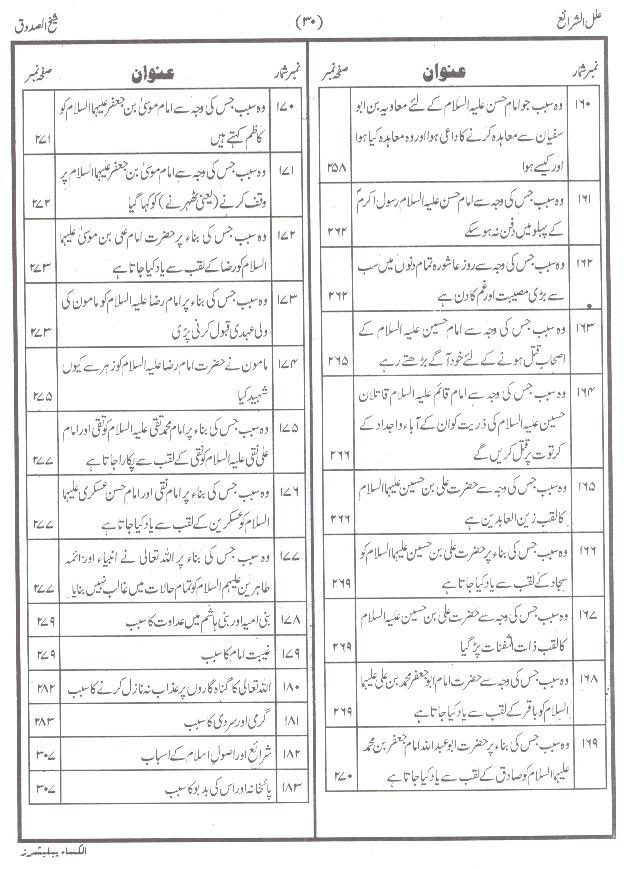 علل الشرائع (۳۰) شیخ الصدوق
نمبر شمار عنوان صفحہ نمبر
۱۶۰ وہ سبب جو امام حسن علیہ السلام کے لئے معاویہ بن ابو
سفیان سے معاہدہ کرنے کا داعی ہوا اور وہ معاہدہ کیا ہوا
اور کیسے ہوا ۲۵۸
۱۶۱ وہ سبب جس کی وجہ سے امام حسن علیہ السلام رسول اکرمؐ
کے پہلو میں دفن نہ ہوسکے ۲۶۲
۱۶۲ وہ سبب جس کی وجہ سے روز عاشورہ تمام دنوں میں سب
سے بڑی مصیبت اور غم کا دن ہے ۲۶۲
۱۶۳ وہ سبب جس کی وجہ سے امام حسین علیہ السلام کے
اصحاب قتل ہونے کے لئے خود آگے بڑھتے رہے ۲۶۵
۱۶۴ وہ سبب جس کی وجہ سے امام قائم علیہ السلام قاتلان
حسین علیہ السلام کی ذریت کو ان کے آباء و اجداد کے
کرتوت پر قتل کریں گے ۲۶۶
۱۶۵ وہ سبب جس کی وجہ سے حضرت علی بن حسین علیہما السلام
کا لقب زین العابدین ہے ۲۶۶
۱۶۶ وہ سبب جس کی بناء پر حضرت علی بن حسین علیہما السلام کو
سجاد کے لقب سے یاد کیا جاتا ہے ۲۶۹
۱۶۷ وہ سبب جس کی وجہ سے حضرت علی بن حسین علیہ السلام
کا لقب ذات ثفنات پڑ گیا ۲۶۹
۱۶۸ وہ سبب جس کی وجہ سے امام ابو جعفر محمد بن علی علیہما
السلام کو باقر کے لقب سے یاد کیا جاتا ہے ۲۶۹
۱۶۹ وہ سبب جس کی بناء پر حضرت ابو عبداللہ امام جعفر بن محمد
علیہما السلام کو صادق کے لقب سے یاد کیا جاتا ہے ۲۷۰
نمبر شمار عنوان صفحہ نمبر
۱۷۰ وہ سبب جس کی وجہ سے امام موسیٰ بن جعفر علیہما السلام کو
کاظم کہتے ہیں ۲۷۱
۱۷۱ وہ سبب جس کی وجہ سے امام موسیٰ بن جعفر علیہما السلام پر
وقف کرنے (یعنی ٹھہرنے) کو کہا گیا ۲۷۲
۱۷۲ وہ سبب جس کی بناء پر حضرت امام علی بن موسیٰ علیہما
السلام کو رضا کے لقب سے یاد کیا جاتا ہے ۲۷۳
۱۷۳ وہ سبب جس کی بناء پر امام رضا علیہ السلام کو مامون کی
ولی عہدی قبول کرنی پڑی ۲۷۳
۱۷۴ مامون نے حضرت امام رضا علیہ السلام کو زہر سے کیوں
شہید کیا ۲۷۵
۱۷۵ وہ سبب جس کی بناء پر امام محمد تقی علیہ السلام کو تقی اور امام
علی نقی علیہ السلام کو نقی کے لقب سے پکارا جاتا ہے ۲۷۷
۱۷۶ وہ سبب جس کی بناء پر امام نقی اور امام حسن عسکری علیہما
السلام کو عسکرین کے لقب سے یاد کیا جاتا ہے ۲۷۷
۱۷۷ وہ سبب جس کی بناء پر اللہ تعالی نے انبیاء اور ائمہ
طاہرین علیہم السلام کو تمام حالات میں غالب نہیں بنایا ۲۷۷
۱۷۸ بنی امیہ اور بنی ہاشم میں عداوت کا سبب ۲۷۹
۱۷۹ غیبت امام کا سبب ۲۷۹
۱۸۰ اللہ تعالی کا گناہ گاروں پر عذاب نہ نازل کرنے کا سبب ۲۸۲
۱۸۱ گرمی اور سردی کا سبب ۲۸۳
۱۸۲ شرائع اور اصول اسلام کے اسباب ۳۰۷
۱۸۳ پائخانہ اور اس کی بدبو کا سبب ۳۰۷
الکساء پبلیشرز